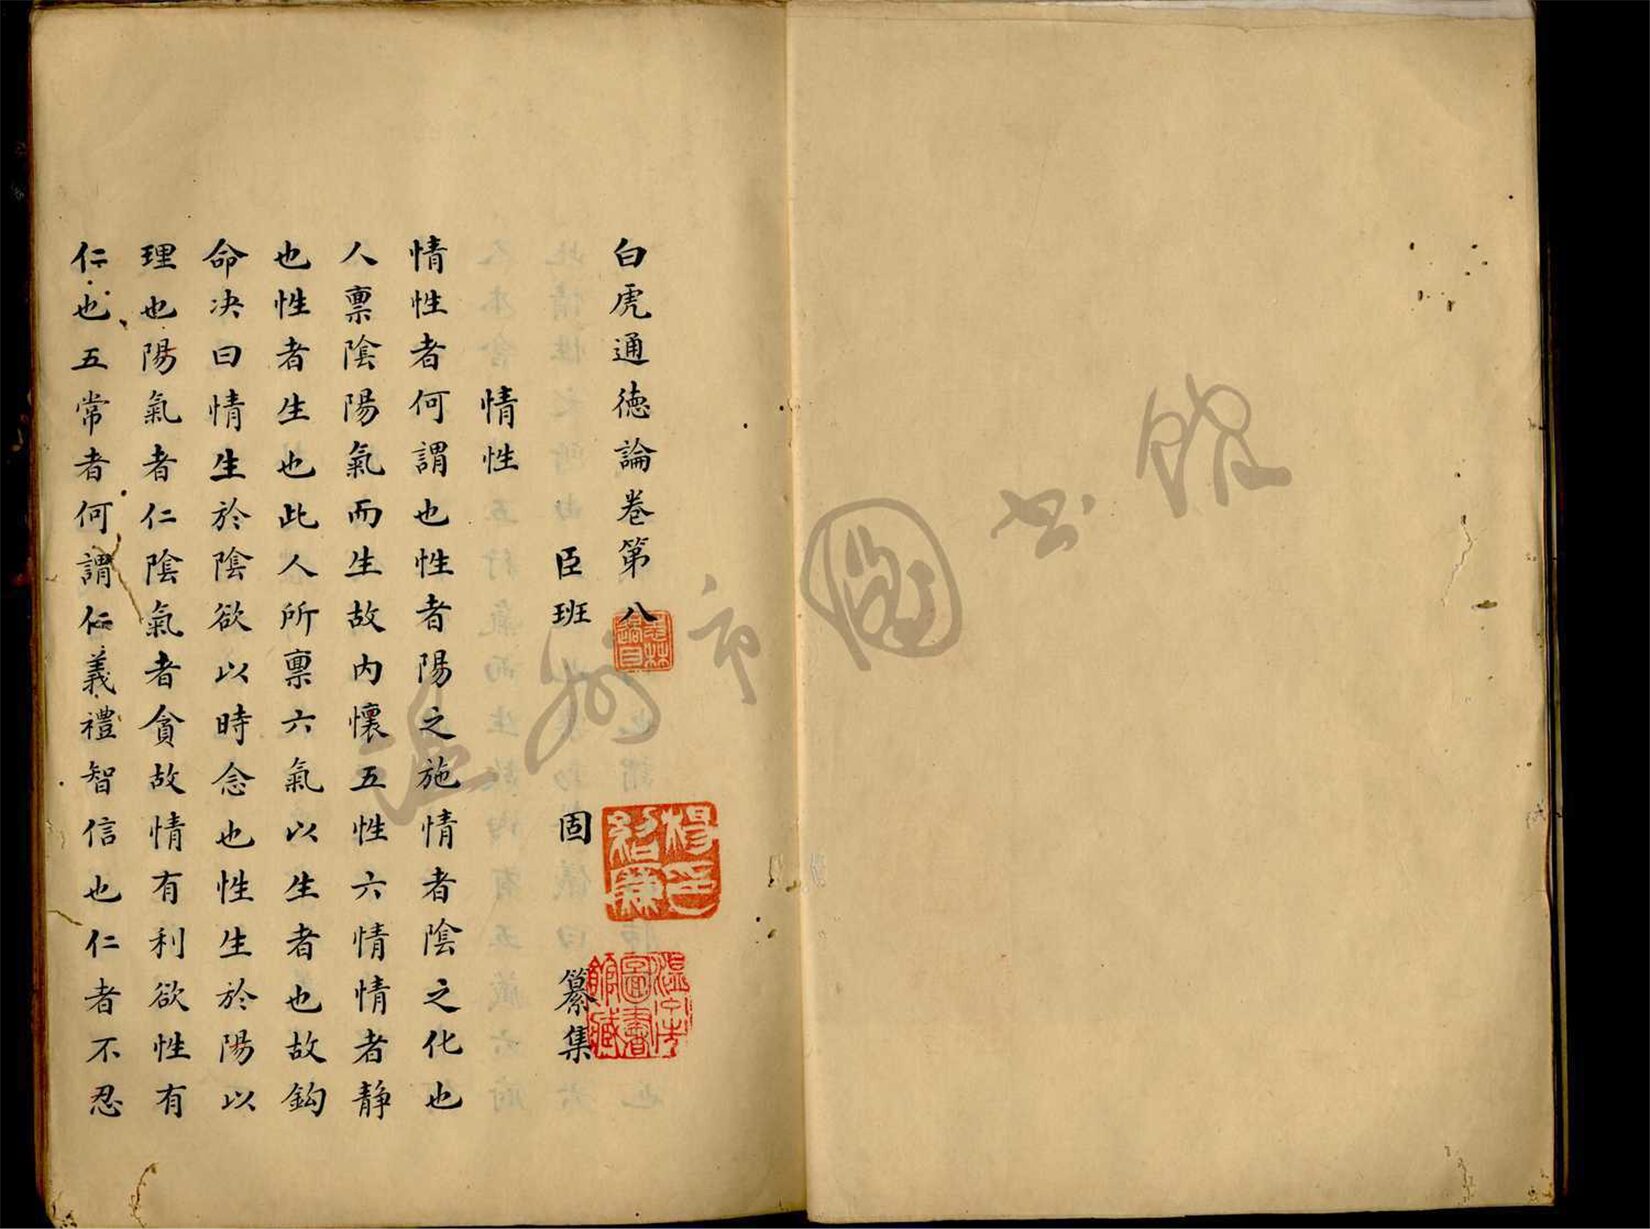 白虎通德論卷第八
臣班固纂集
情性
情性者何謂也性者陽之施情者陰之化也
人禀陰陽氣而生故内懷五性六情情者静
也性者生也此人所禀六氣以生者也故鈎
命决曰情生於陰欲以時念也性生於陽以
理也陽氣者仁陰氣者貪故情有利欲性有
仁也五常者何謂仁義禮智信也仁者不忍
楊紹廉印
溫州市圖書館藏
溫州市圖书館